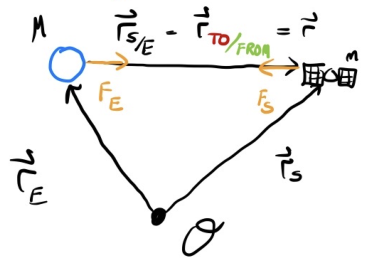 M
r⃗S/E = r⃗TO/FROM = r⃗
m
F⃗E
F⃗S
r⃗E
r⃗S
O